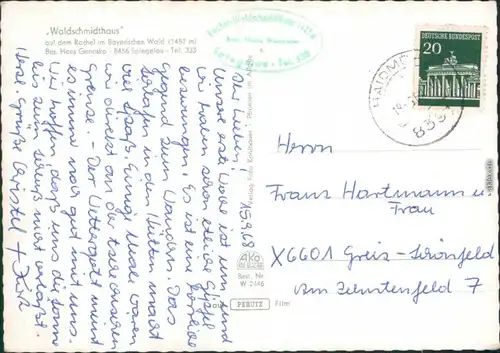 „Waldschmidthaus"
auf dem Rachel im Bayerischen Wald (1457 m)
Bes. Hans Genosko - 8456 Spiegelau - Tel. 333
DEUTSCHE BUNDESPOST
20
839
15.9.68
Ihr Lieben!
Unsre erste Woche ist um und
wir haben schon etliche Gipfel
bezwungen. Es ist eine herrliche
Gegend zum Wandern. Das
Schlafen in den Hütten macht
viel Spaß. Einige Male waren
wir direkt an der tschechischen
Grenze. - Der Wettergott meint
es immer noch gut mit uns.
Wir hoffen, daß uns die Sonne
bis zum Schluß nicht verläßt.
Herzl. Grüße Christel + Dirk
Familie
Franz Hartmann u.
Frau
X6601 Greiz-Schönfeld
Am Zehntenfeld 7
Best. Nr.
W 2446
auf PERUTZ Film